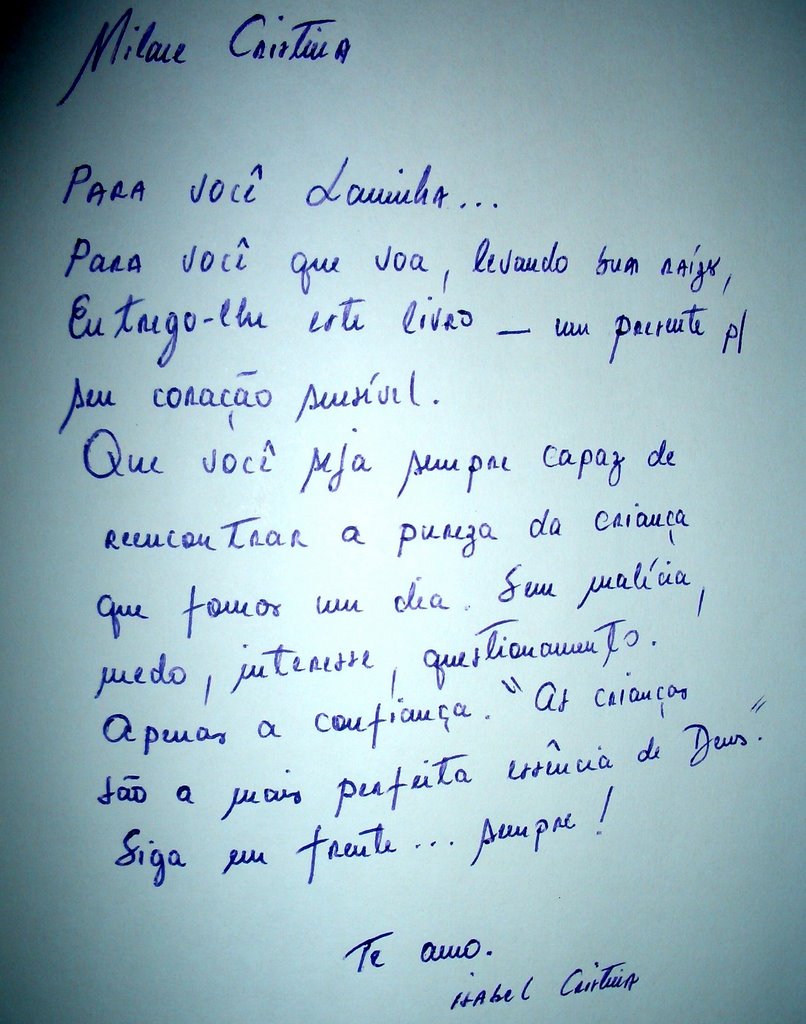 Milane Cristina
Para você Laninha...
Para você que voa, levando suas raízes,
Entrego-lhe este livro — um presente p/
seu coração sensível.
Que você seja sempre capaz de
reencontrar a pureza da criança
que fomos um dia. Sem malícia,
medo, interesse, questionamento.
Apenas a confiança. "As crianças
são a mais perfeita essência de Deus."
Siga em frente... sempre!
Te amo.
Isabel Cristina